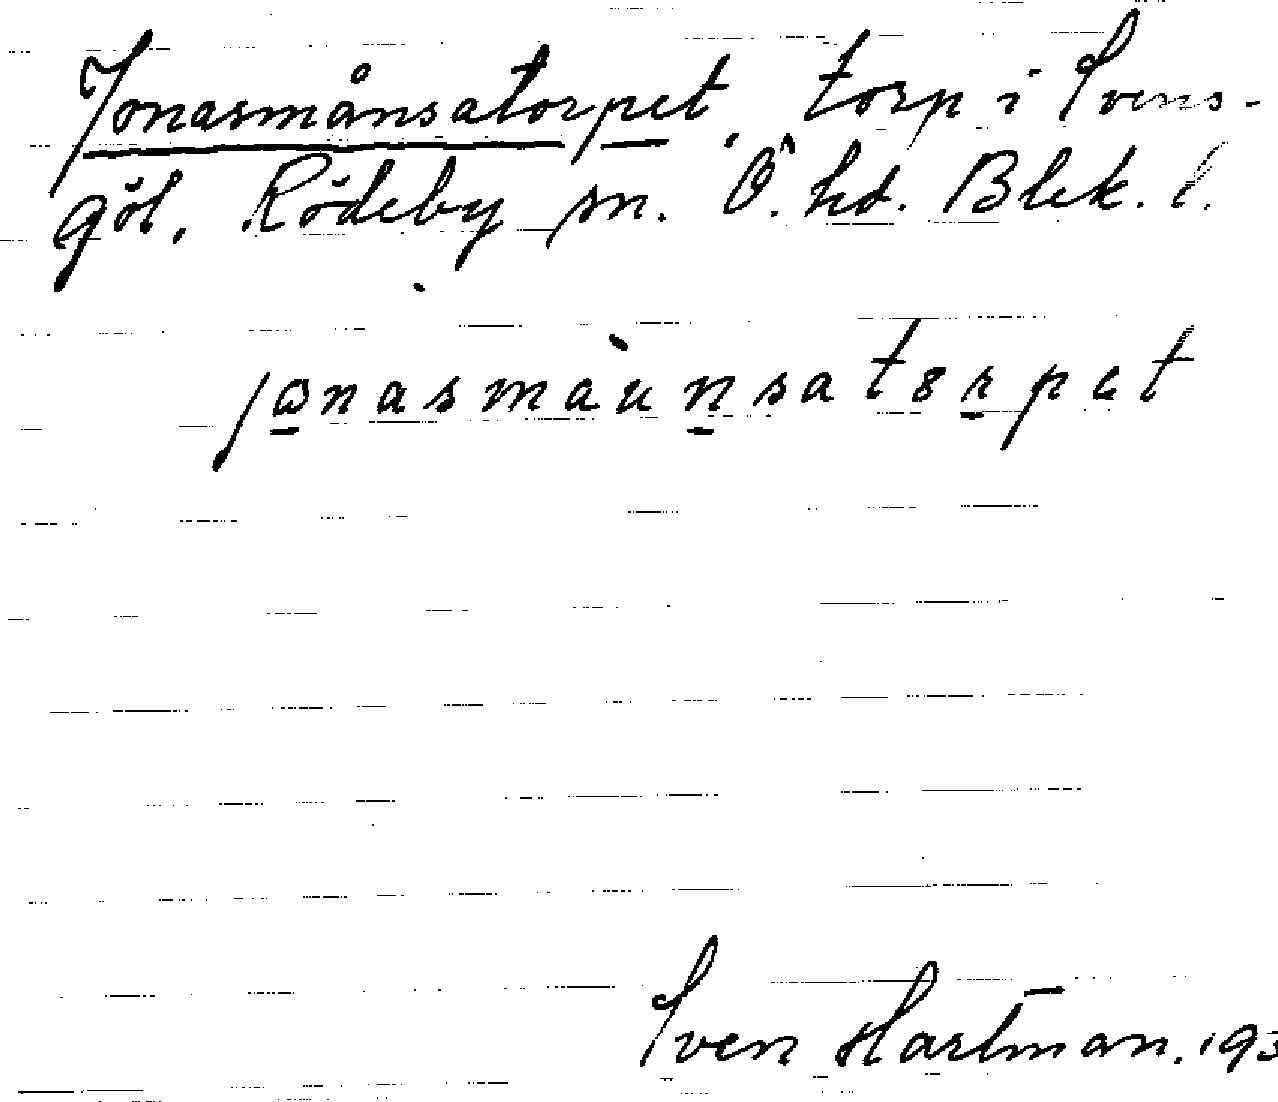 Jonasmånsatorpet, torp i Svens-
göl, Rödeby sn. Ö. hd. Blek. l.
jωnasmaùnsatorpet
Sven Hartman. 193